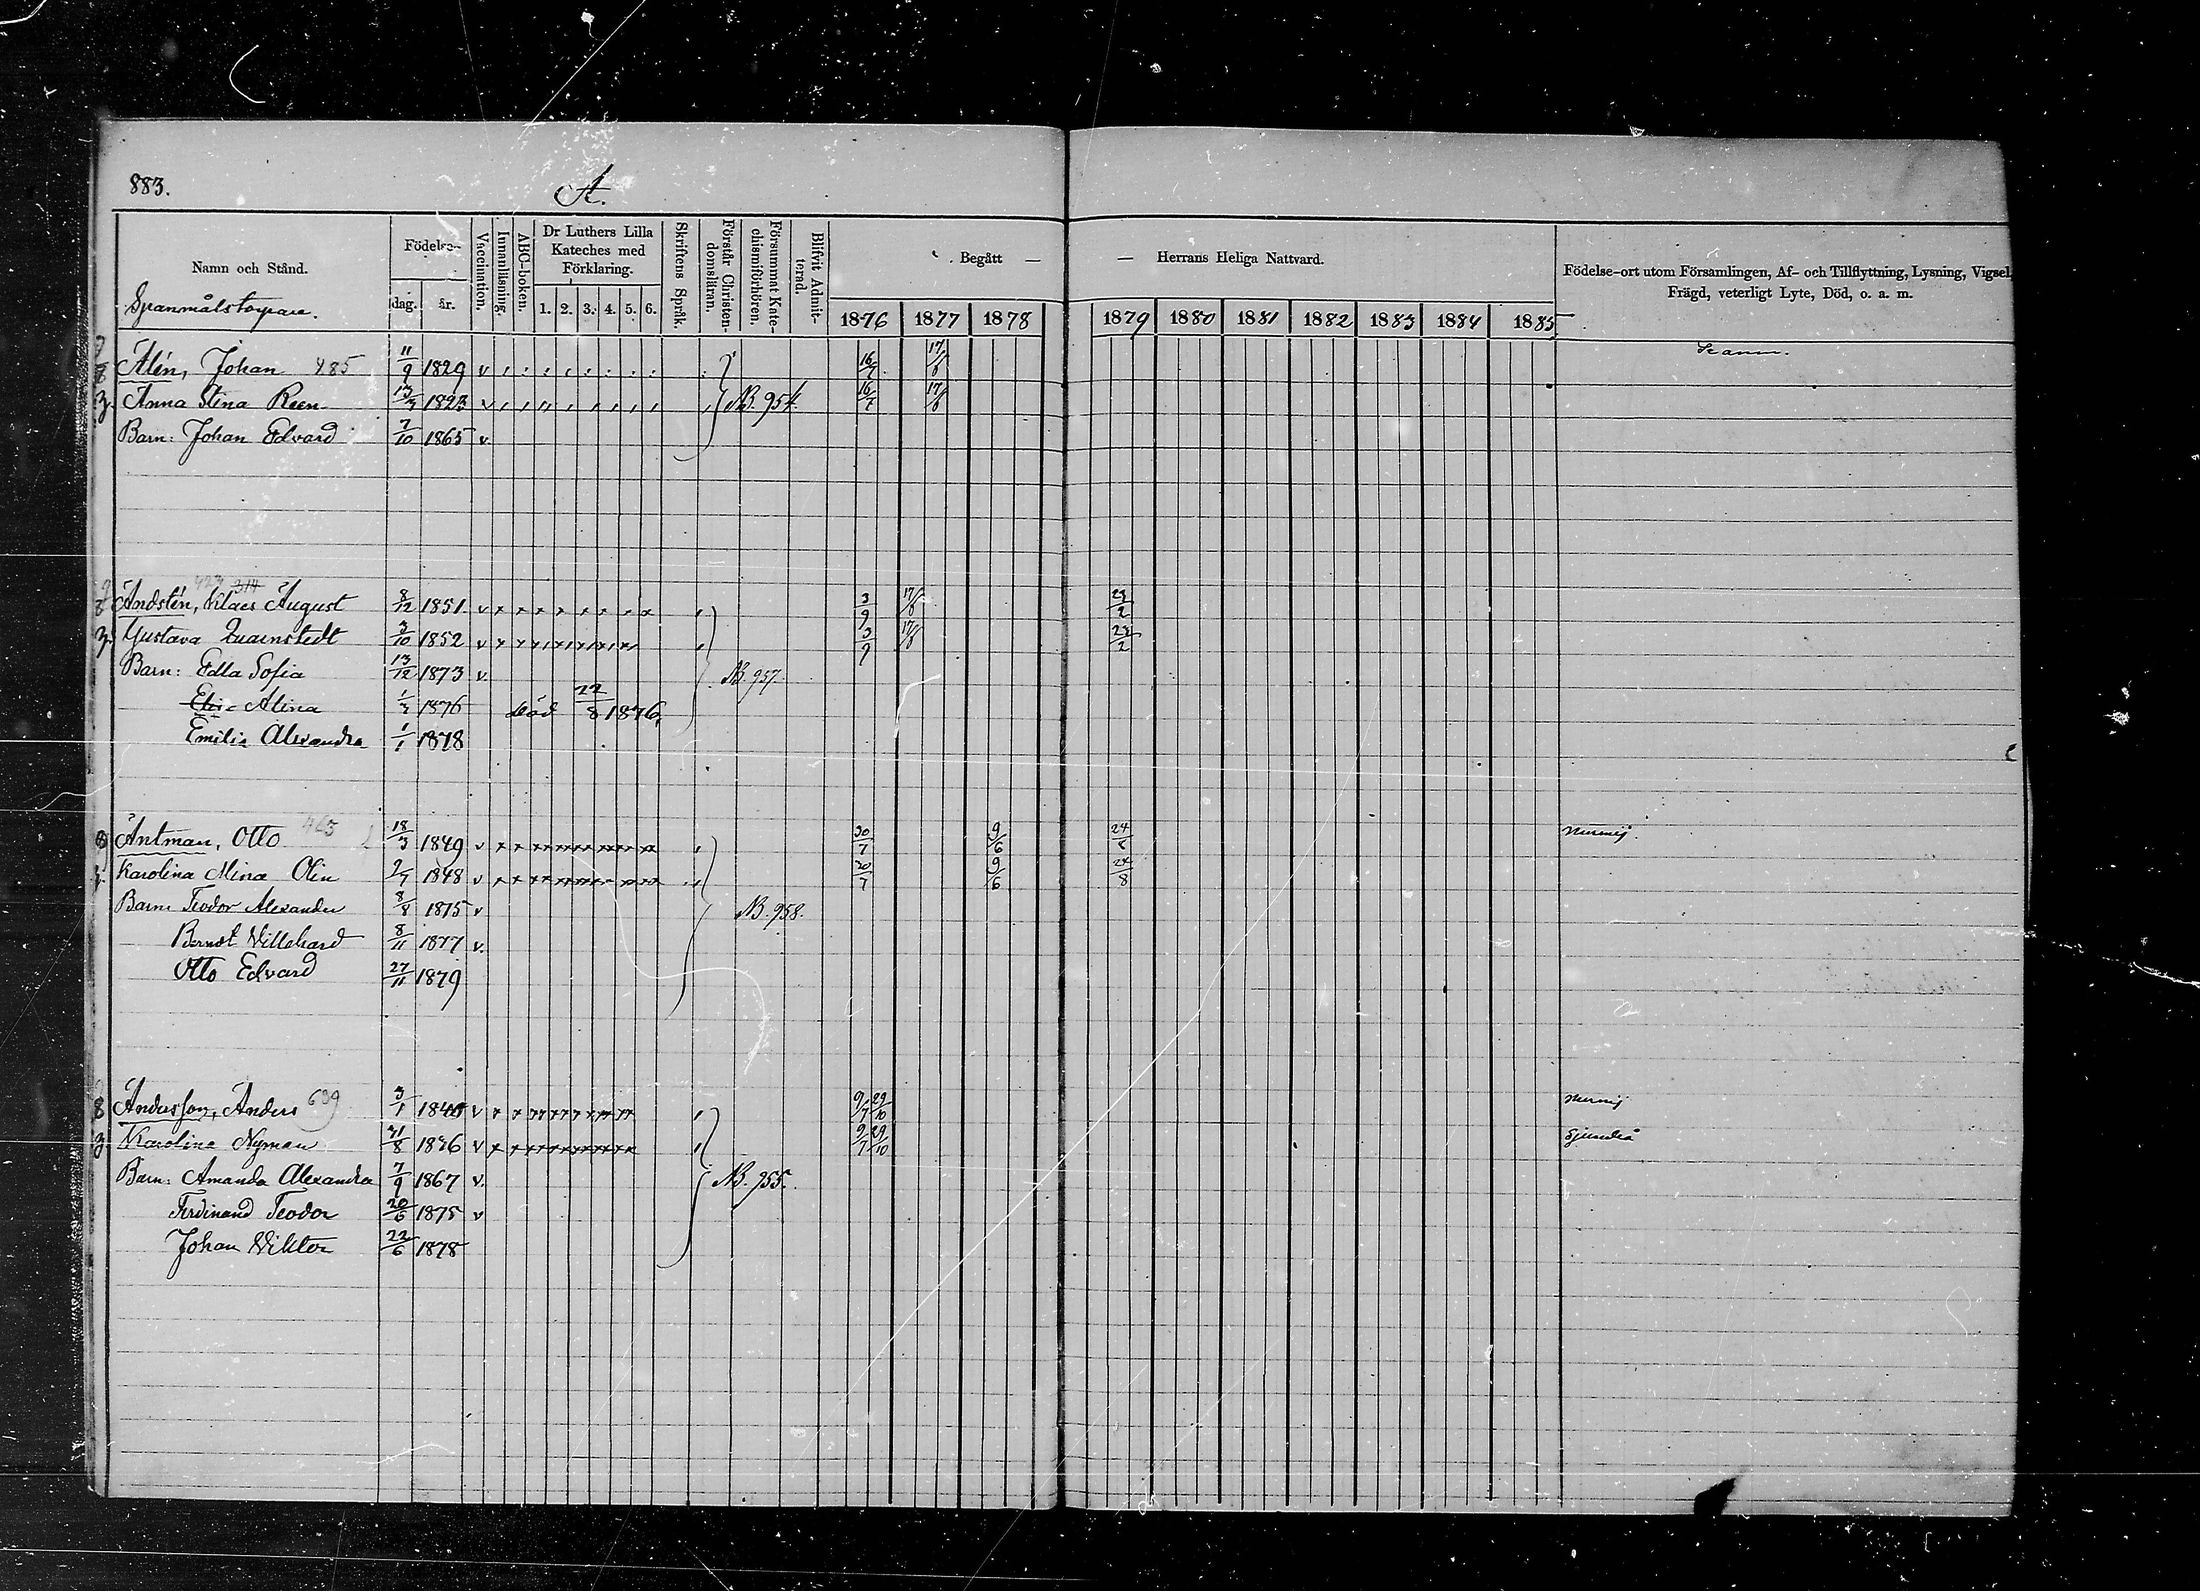 883.
A.
Namn och Stånd.
Födelse-
dag.
år.
Vaccination.
Innanläsning.
ABC-boken.
Dr Luthers Lilla
Kateches med
Förklaring.
1. 2. 3. 4. 5. 6.
Skriftens Språk.
Förstår Christen-
domsläran.
Försummat Kate-
chismiförhören.
Blifvit Admit-
terad.
Begått —
— Herrans Heliga Nattvard.
1876 1877 1878 1879 1880 1881 1882 1883 1884 1885
Födelse-ort utom Församlingen, Af- och Tillflyttning, Lysning, Vigsel,
Frägd, veterligt Lyte, Död, o. a. m.
Alén, Johan 485 11/9 1829 v 16/7 17/6
Anna Stina Reen 13/3 1823 v NB. 954. 16/7 17/6
Barn: Johan Edvard 7/10 1865 v
Andstén, Klaes August 8/12 1851 v 3/9 17/6 23/2
Gustava 3/10 1852 v 3/9 17/6 23/2
Barn: Edla Sofia 13/12 1873 v. NB. 957.
Alina 1876 död 22/8 1876.
Emilia Alexandra 1/1 1878
Antman, Otto 465 18/3 1849 v 30/7 9/6 24/8 Nurmij.
Karolina Mina Olin 2/7 1848 v 30/7 9/6 24/8
Barn: Teodor Alexander 8/8 1875 v NB. 958.
Berndt Villehard 8/11 1877 v.
Otto Edvard 27/11 1879
Andersson, Anders 639 3/1 v 9/7 29/10 Nurmij
Karolina Nyman 31/8 v 9/7 29/10 Sjundeå
Barn: Amanda Alexandra 7/9 1867 v. NB. 955.
Ferdinand Teodor 20/6 1875 v
Johan Viktor 22/6 1878